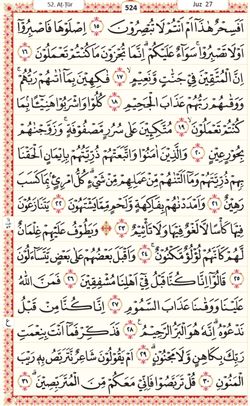 52. Aṭ-Ṭūr 524 Juz 27
اَفَسِحْرٌ هٰذَٓا اَمْ اَنْتُمْ لَا تُبْصِرُونَ ۝١٥ اِصْلَوْهَا فَاصْبِرُٓوا
اَوْ لَا تَصْبِرُواۚ سَوَٓاءٌ عَلَيْكُمْۜ اِنَّمَا تُجْزَوْنَ مَا كُنْتُمْ تَعْمَلُونَ ۝١٦
اِنَّ الْمُتَّقٖينَ فٖي جَنَّاتٍ وَنَعٖيمٍۙ ۝١٧ فَاكِهٖينَ بِمَٓا اٰتٰيهُمْ رَبُّهُمْۚ
وَوَقٰيهُمْ رَبُّهُمْ عَذَابَ الْجَحٖيمِ ۝١٨ كُلُوا وَاشْرَبُوا هَنٖٓيـًٔا بِمَا
كُنْتُمْ تَعْمَلُونَۙ ۝١٩ مُتَّكِـٖٔينَ عَلٰى سُرُرٍ مَصْفُوفَةٍۚ وَزَوَّجْنَاهُمْ
بِحُورٍ عٖينٍ ۝٢٠ وَالَّذٖينَ اٰمَنُوا وَاتَّبَعَتْهُمْ ذُرِّيَّتُهُمْ بِاٖيمَانٍ اَلْحَقْنَا
بِهِمْ ذُرِّيَّتَهُمْ وَمَٓا اَلَتْنَاهُمْ مِنْ عَمَلِهِمْ مِنْ شَيْءٍۜ كُلُّ امْرِئٍ بِمَا كَسَبَ
رَهٖينٌ ۝٢١ وَاَمْدَدْنَاهُمْ بِفَاكِهَةٍ وَلَحْمٍ مِمَّا يَشْتَهُونَ ۝٢٢ يَتَنَازَعُونَ
فٖيهَا كَأْسًا لَا لَغْوٌ فٖيهَا وَلَا تَأْثٖيمٌ ۝٢٣ وَيَطُوفُ عَلَيْهِمْ غِلْمَانٌ
لَهُمْ كَاَنَّهُمْ لُؤْلُؤٌ مَكْنُونٌ ۝٢٤ وَاَقْبَلَ بَعْضُهُمْ عَلٰى بَعْضٍ يَتَسَٓاءَلُونَ
۝٢٥ قَالُٓوا اِنَّا كُنَّا قَبْلُ فٖٓي اَهْلِنَا مُشْفِقٖينَ ۝٢٦ فَمَنَّ اللّٰهُ
عَلَيْنَا وَوَقٰينَا عَذَابَ السَّمُومِ ۝٢٧ اِنَّا كُنَّا مِنْ قَبْلُ
نَدْعُوهُۜ اِنَّهُ هُوَ الْبَرُّ الرَّحٖيمُ ۝٢٨ فَذَكِّرْ فَمَٓا اَنْتَ بِنِعْمَتِ
رَبِّكَ بِكَاهِنٍ وَلَا مَجْنُونٍۜ ۝٢٩ اَمْ يَقُولُونَ شَاعِرٌ نَتَرَبَّصُ بِهٖ رَيْبَ
الْمَنُونِ ۝٣٠ قُلْ تَرَبَّصُوا فَاِنّٖي مَعَكُمْ مِنَ الْمُتَرَبِّصٖينَۜ ۝٣١